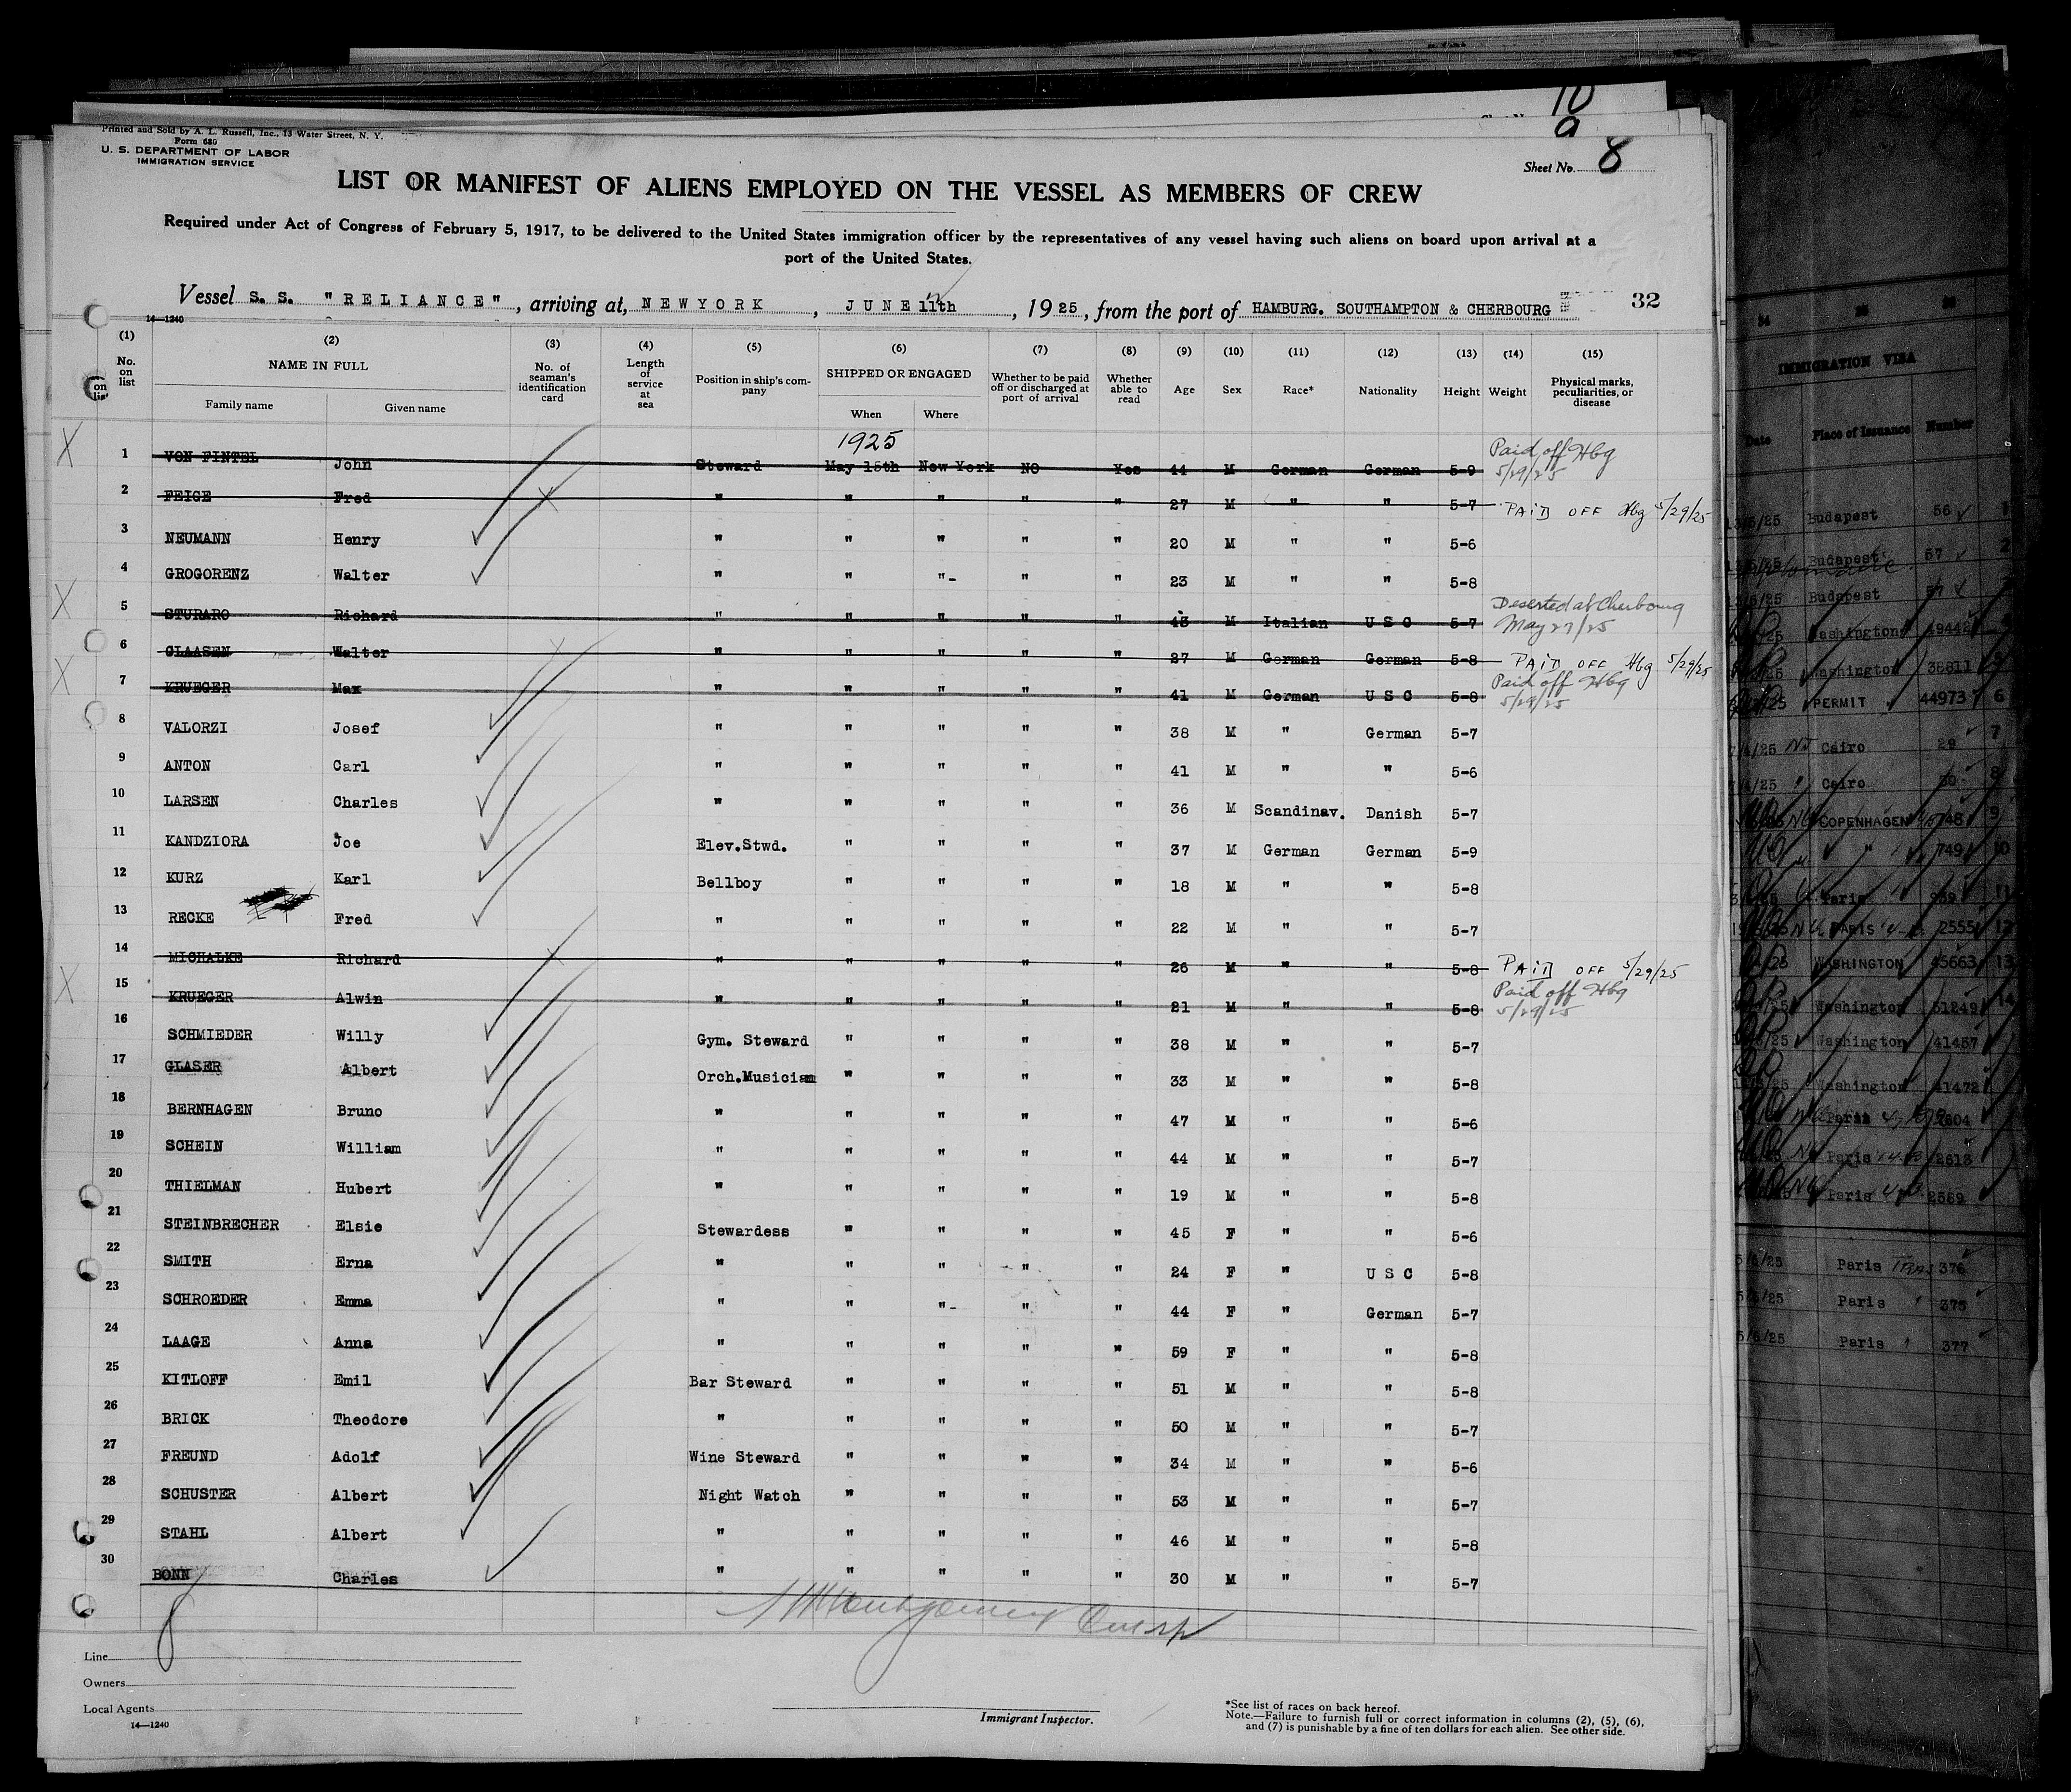 10
9
Printed and Sold by A. L. Russell, Inc., 13 Water Street, N. Y.
Form 680
U. S. DEPARTMENT OF LABOR
IMMIGRATION SERVICE
Sheet No. 8
LIST OR MANIFEST OF ALIENS EMPLOYED ON THE VESSEL AS MEMBERS OF CREW
Required under Act of Congress of February 5, 1917, to be delivered to the United States immigration officer by the representatives of any vessel having such aliens on board upon arrival at a
port of the United States.
Vessel S. S. "RELIANCE", arriving at, NEWYORK, JUNE 11th, 1925, from the port of HAMBURG. SOUTHAMPTON & CHERBOURG 32
14—1240
(1) No. on list (2) NAME IN FULL Family name Given name (3) No. of seaman's identification card (4) Length of service at sea (5) Position in ship's company (6) SHIPPED OR ENGAGED When Where (7) Whether to be paid off or discharged at port of arrival (8) Whether able to read (9) Age (10) Sex (11) Race* (12) Nationality (13) Height (14) Weight (15) Physical marks, peculiarities, or disease
1925
X 1 VON FINTEL John Steward May 15th New York NO Yes 44 M German German 5-9 Paid off Hbg 5/29/25
2 FEIGE Fred X " " " " " 27 M " " 5-7 PAID OFF Hbg 5/29/25
3 NEUMANN Henry " " " " " 20 M " " 5-6
4 GROGORENZ Walter " " "- " " 23 M " " 5-8
X 5 STURARO Richard " " " " " 43 M Italian U S C 5-7 Deserted at Cherbourg May 27/25
6 CLAASEN Walter X " " " " " 27 M German German 5-8 PAID OFF Hbg 5/29/25
X 7 KRUEGER Max " " " " " 41 M German U S C 5-8 Paid off Hbg 5/29/25
8 VALORZI Josef " " " " " 38 M " German 5-7
9 ANTON Carl " " " " " 41 M " " 5-6
10 LARSEN Charles " " " " " 36 M Scandinav. Danish 5-7
11 KANDZIORA Joe Elev.Stwd. " " " " 37 M German German 5-9
12 KURZ Karl Bellboy " " " " 18 M " " 5-8
13 RECKE Fred " " " " " 22 M " " 5-7
14 MICHALKE Richard X " " " " " 26 M " " 5-8 PAID OFF 5/29/25
X 15 KRUEGER Alwin " " " " " 21 M " " 5-8 Paid off Hbg 5/29/25
16 SCHMIEDER Willy Gym. Steward " " " " 38 M " " 5-7
17 GLASER Albert Orch.Musician " " " " 33 M " " 5-8
18 BERNHAGEN Bruno " " " " " 47 M " " 5-6
19 SCHEIN William " " " " " 44 M " " 5-7
20 THIELMAN Hubert " " " " " 19 M " " 5-8
21 STEINBRECHER Elsie Stewardess " " " " 45 F " " 5-6
22 SMITH Erna " " " " " 24 F " U S C 5-8
23 SCHROEDER Emma " " "- " " 44 F " German 5-7
24 LAAGE Anna " " " " " 59 F " " 5-8
25 KITLOFF Emil Bar Steward " " " " 51 M " " 5-8
26 BRICK Theodore " " " " " 50 M " " 5-7
27 FREUND Adolf Wine Steward " " " " 34 M " " 5-6
28 SCHUSTER Albert Night Watch " " " " 53 M " " 5-7
29 STAHL Albert " " " " " 46 M " " 5-8
30 BONN Charles " " " " " 30 M " " 5-7
Line
Owners
Local Agents
14—1240
Immigrant Inspector.
*See list of races on back hereof.
Note.—Failure to furnish full or correct information in columns (2), (5), (6),
and (7) is punishable by a fine of ten dollars for each alien. See other side.
IMMIGRATION VISA
Date Place of Issuance Number
Budapest 56 1
Budapest 57 2
Budapest
Washington 49442
Washington 38811 5
PERMIT 44973 6
Cairo 29 7
Cairo 30 8
COPENHAGEN 748 9
" 749 10
Paris 11
PARIS 2555 12
WASHINGTON 45663 13
Washington 51249 14
Washington 41457
Washington 41472
Paris 2604
Paris 2613
Paris 2589
5/6/25 Paris 376
5/6/25 Paris 375
5/6/25 Paris 377